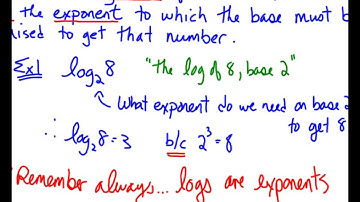 the exponent to which the base must b
ised to get that number.
Ex1 log₂8 "the log of 8, base 2"
What exponent do we need on base 2
to get 8
∴ log₂8=3 b/c 2³=8
Remember always... logs are exponents